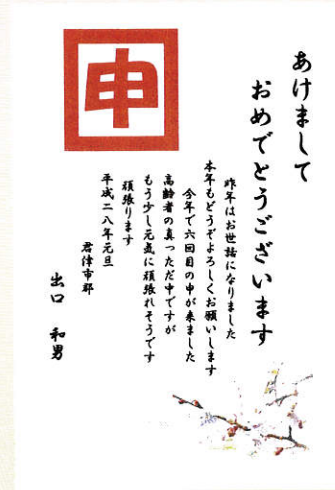 あけまして
おめでとうございます
昨年はお世話になりました
本年もどうぞよろしくお願いします
今年で六回目の申が来ました
高齢者の真っただ中ですが
もう少し元気に頑張れそうです
頑張ります
平成二八年元旦
君津市郡
出口 和男
申